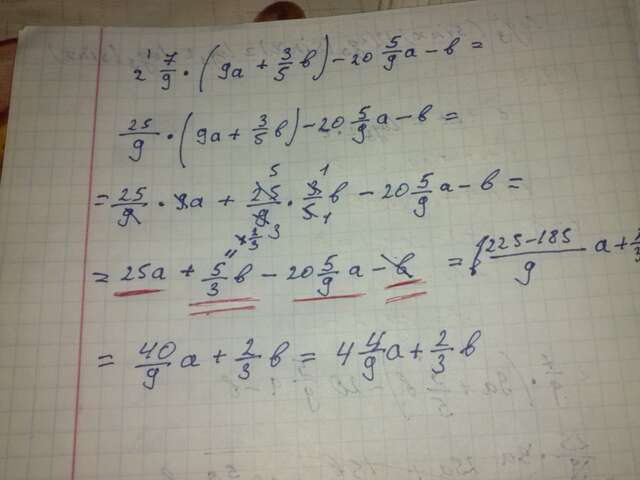 2 7/9 · (9a + 3/5 в) - 20 5/9 a - в =
25/9 · (9a + 3/5 в) - 20 5/9 a - в =
= 25/9 · 9a + 25/9 · 3/5 в - 20 5/9 a - в =
= 25a + 5/3 в - 20 5/9 a - в = (225-185)/9 a +
= 40/9 a + 2/3 в = 4 4/9 a + 2/3 в